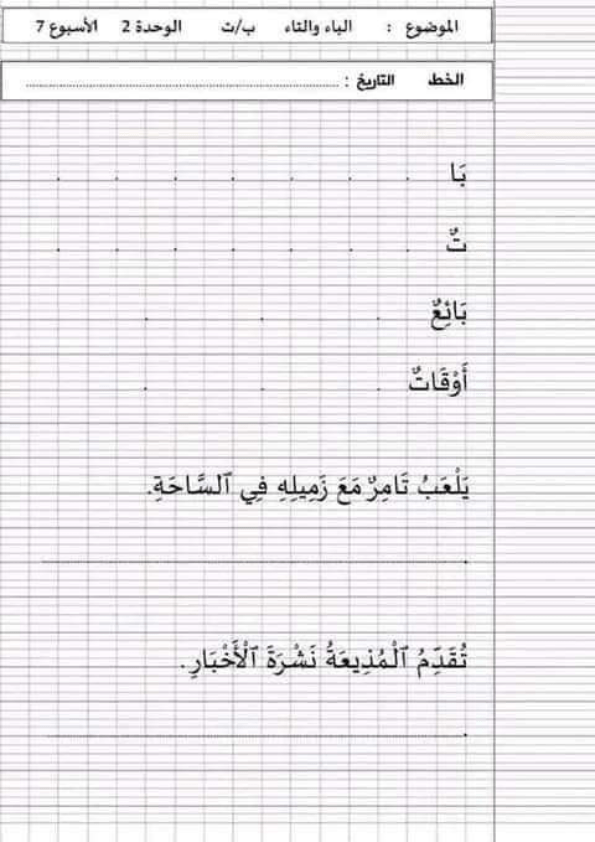 الموضوع : الباء والتاء ب/ت الوحدة 2 الأسبوع 7
الخط التاريخ : ........................................
بَا . . . . . . .
تٌ . . . . . . .
بَائِعٌ . . .
أَوْقَاتٌ . . .
يَلْعَبُ تَامِرٌ مَعَ زَمِيلِهِ فِي ٱلسَّاحَةِ.
تُقَدِّمُ ٱلْمُذِيعَةُ نَشْرَةَ ٱلْأَخْبَارِ.